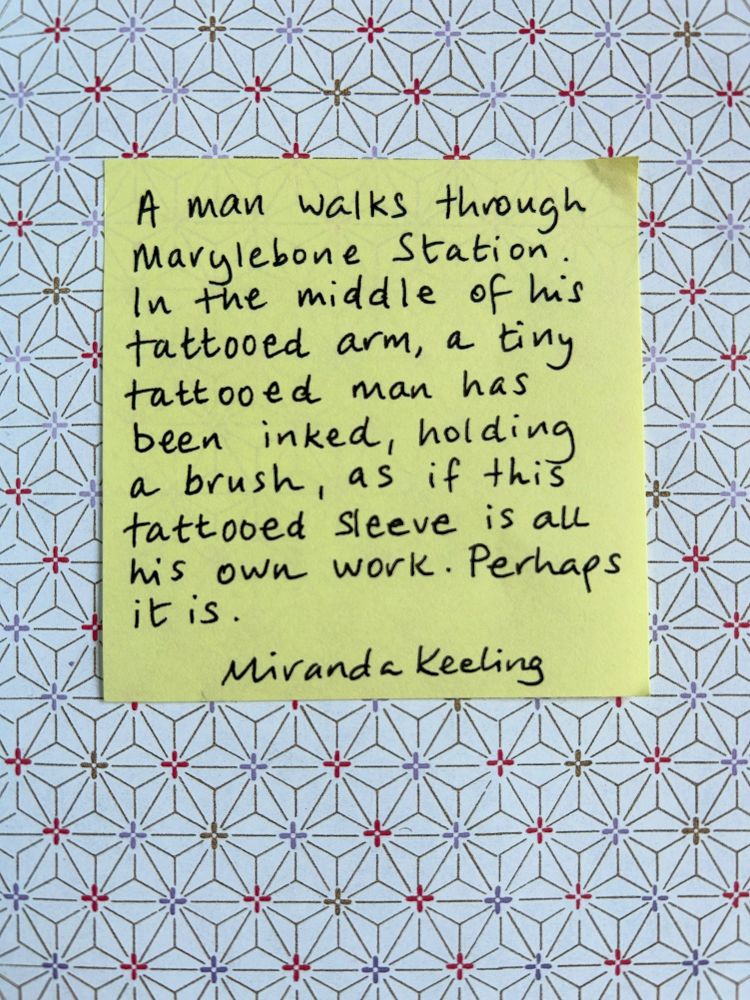 A man walks through
Marylebone Station.
In the middle of his
tattooed arm, a tiny
tattooed man has
been inked, holding
a brush, as if this
tattooed sleeve is all
his own work. Perhaps
it is.
Miranda Keeling